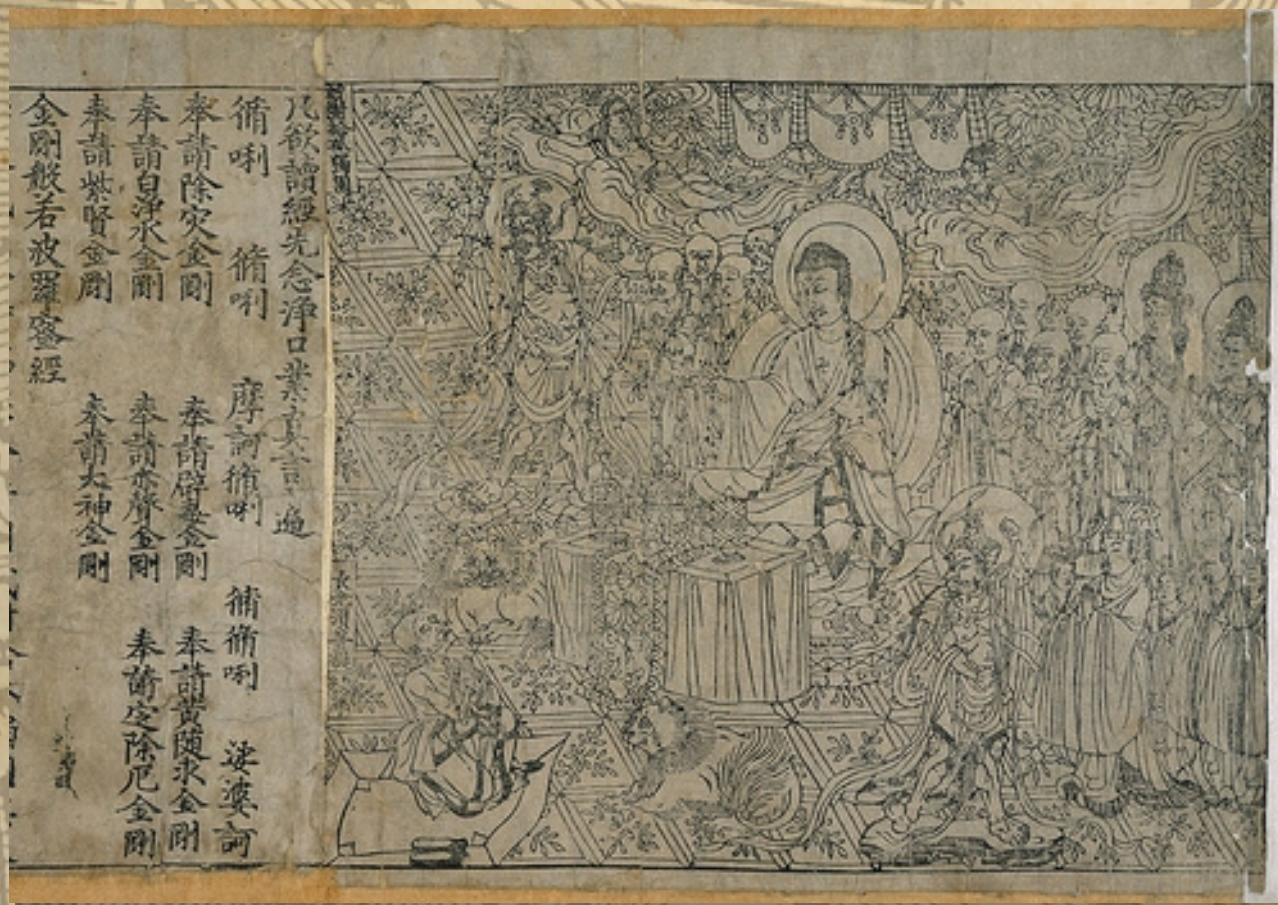 凡欲讀經先念淨口業真言一遍
脩唎 脩唎 摩訶脩唎 脩脩唎 娑婆訶
奉請除灾金剛 奉請辟毒金剛 奉請黄隨求金剛
奉請白淨水金剛 奉請赤聲金剛 奉請定除厄金剛
奉請紫賢金剛 奉請大神金剛
金剛般若波羅蜜經